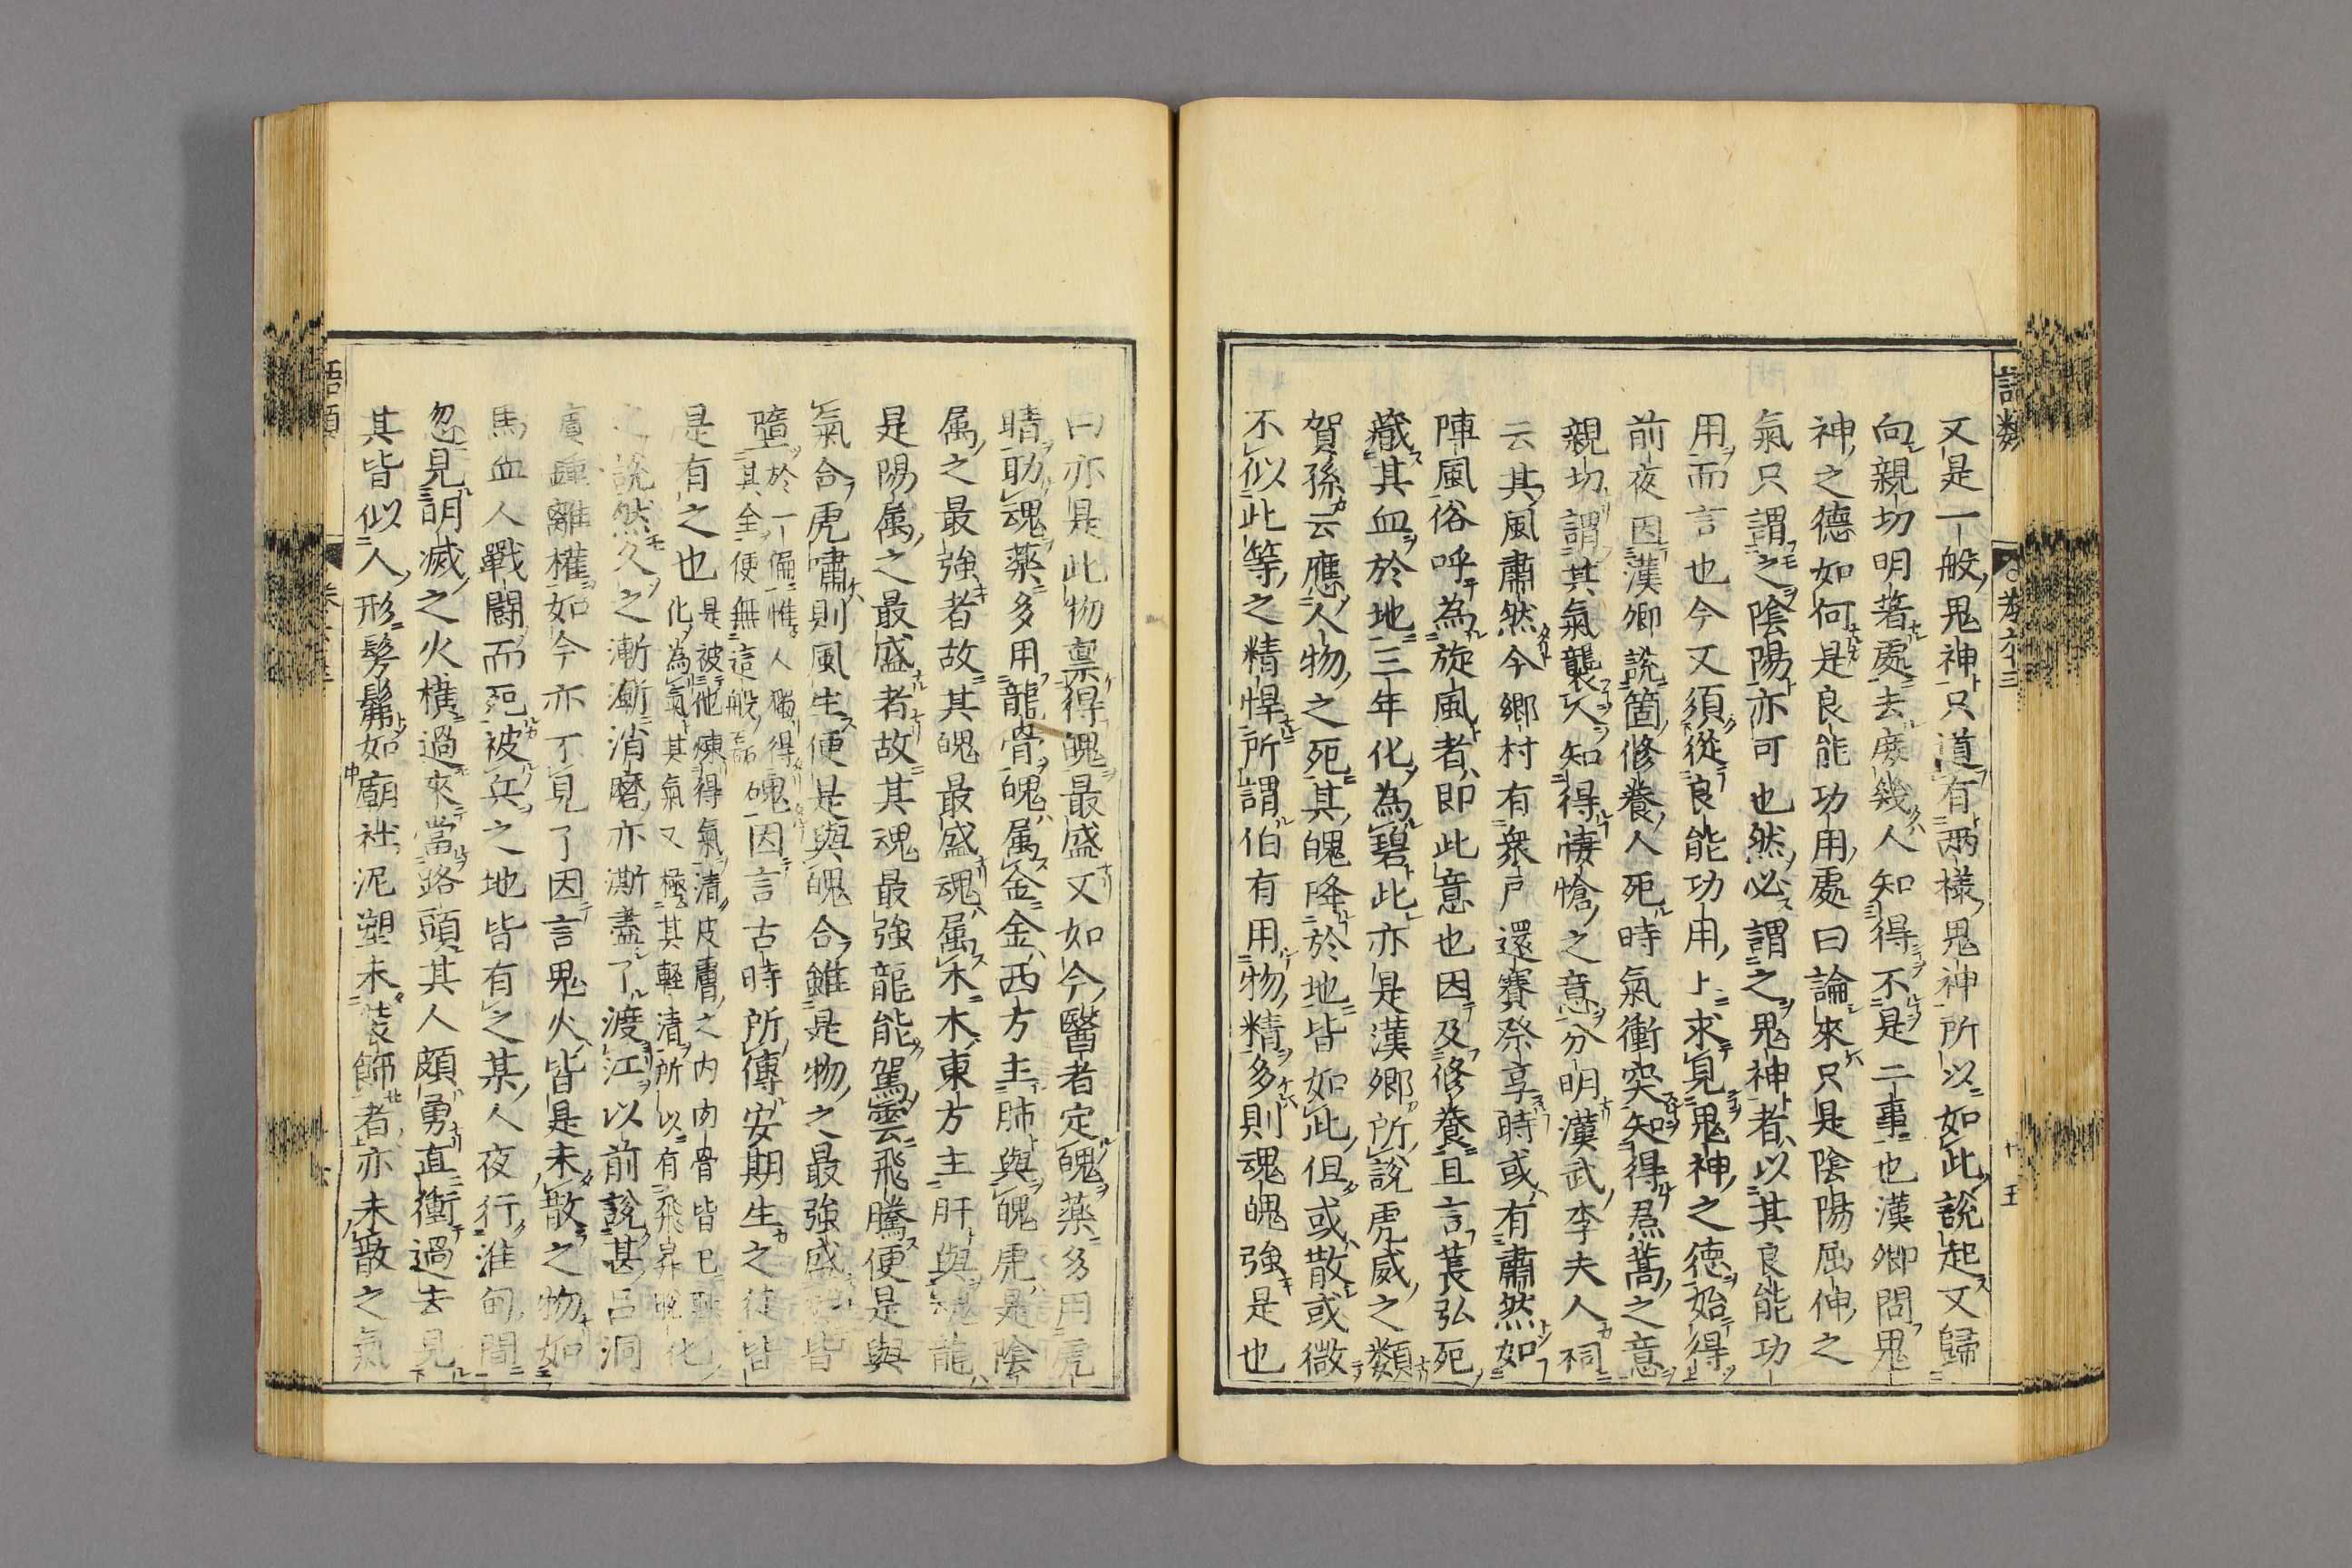 又是一般鬼神只道有兩樣鬼神所以如此說起又歸
向親切明著處去庶幾人知得不是二事也漢卿問鬼
神之德如何是良能功用處曰論來只是陰陽屈伸之
氣只謂之陰陽亦可也然必謂之鬼神者以其良能功
用而言也今又須從良能功用上求見鬼神之德始得
前夜因漢卿說箇修養人死時氣衝突知得焄蒿之意
親切謂其氣襲人知得悽愴之意分明漢武李夫人祠
云其風肅然今鄉村有衆戶還賽祭享時或有肅然如
陣風俗呼為旋風者即此意也因及修養且言萇弘死
藏其血於地三年化為碧此亦是漢卿所說虎威之類
賀孫云應人物之死其魄降於地皆如此但或散或微
不似此等之精悍所謂伯有用物精多則魂魄強是也
曰亦是此物禀得魄最盛又如今醫者定魄藥多用虎
睛助魂藥多用龍骨魄属金金西方主肺與魄虎是陰
属之最強者故其魄最盛魂属木木東方主肝與魂龍
是陽属之最盛者故其魂最強龍能駕雲飛騰便是與
氣合虎嘯則風生便是與魄合雖是物之最強盛然皆
墮於一偏惟人獨得
其全便無這般磊磈因言古時所傳安期生之徒皆
是有之也是被他煉得氣清皮膚之内肉骨皆已融
化為氣其氣又極其軽清所以有飛昇脱化
之說然久之漸漸消磨亦澌盡了渡江以前說甚呂洞
賓鍾離權如今亦不見了因言鬼火皆是未散之物如
馬血人戰闘而死被兵之地皆有之某人夜行淮甸間
忽見明滅之火横過來當路頭其人頗勇直衝過去見
其皆似人形髣髴如廟社泥塑未裝飾者亦未散之氣